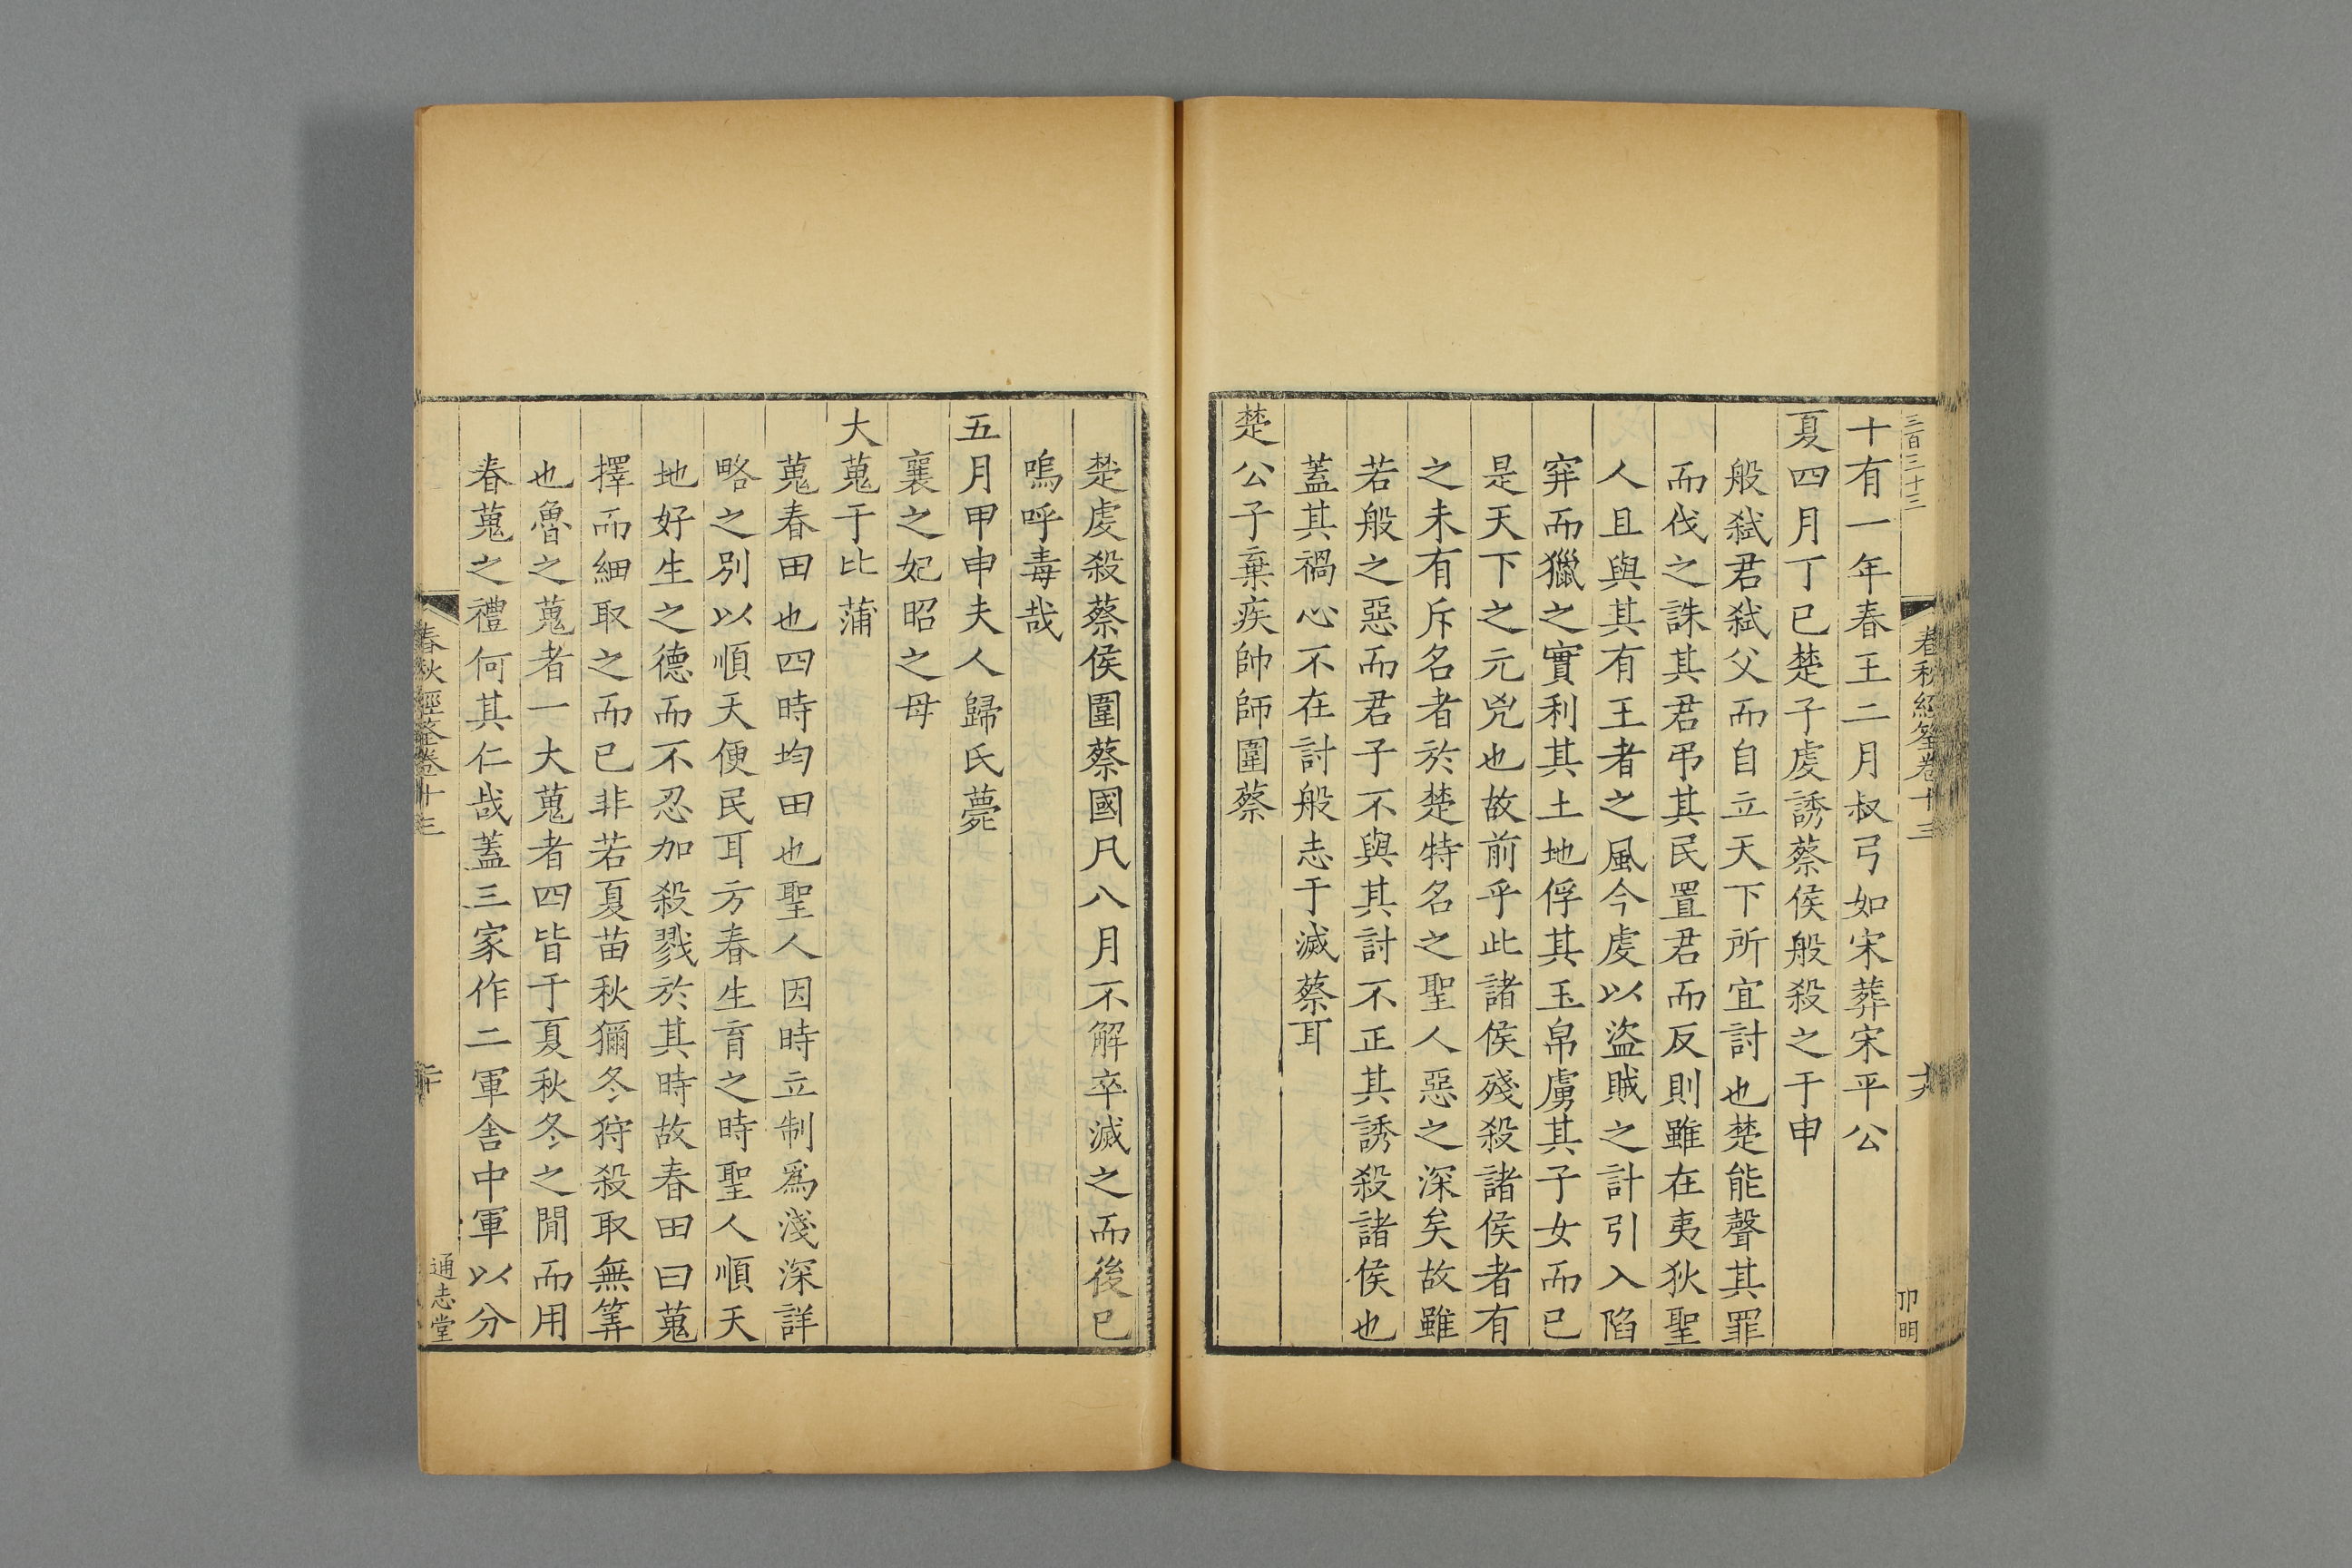 三百三十三
春秋經筌卷十三
十六
卭明
十有一年春王二月叔弓如宋葬宋平公
夏四月丁巳楚子虔誘蔡侯般殺之于申
般弑君弑父而自立天下所宜討也楚能聲其罪
而伐之誅其君弔其民置君而反則雖在夷狄聖
人且與其有王者之風今虔以盜賊之計引入陷
穽而獵之實利其土地俘其玉帛虜其子女而已
是天下之元兇也故前乎此諸侯殘殺諸侯者有
之未有斥名者於楚特名之聖人惡之深矣故雖
若般之惡而君子不與其討不正其誘殺諸侯也
蓋其禍心不在討般志于滅蔡耳
楚公子棄疾帥師圍蔡
楚虔殺蔡侯圍蔡國凡八月不解卒滅之而後已
嗚呼毒哉
五月甲申夫人歸氏薨
襄之妃昭之母
大蒐于比蒲
蒐春田也四時均田也聖人因時立制爲淺深詳
略之別以順天便民耳方春生育之時聖人順天
地好生之德而不忍加殺戮於其時故春田曰蒐
擇而細取之而已非若夏苗秋獮冬狩殺取無筭
也魯之蒐者一大蒐者四皆于夏秋冬之閒而用
春蒐之禮何其仁哉蓋三家作二軍舍中軍以分
春秋經筌卷十三
二十
通志堂